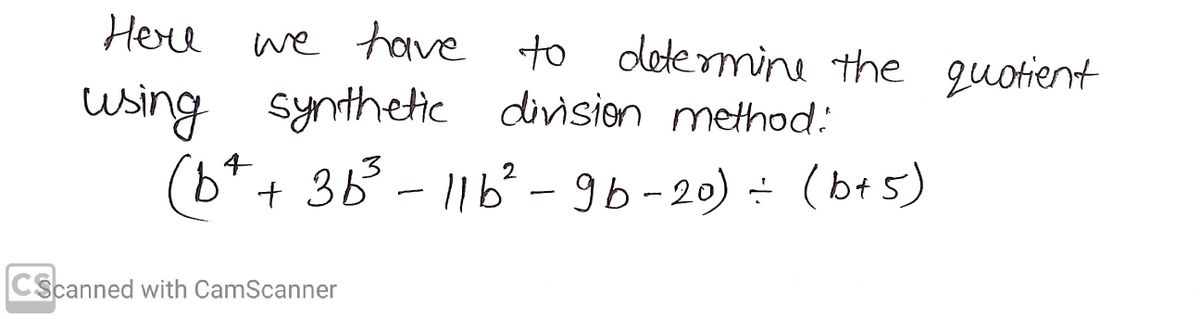 Here we have to determine the quotient
using synthetic division method:
(b⁴ + 3b³ - 11b² - 9b - 20) ÷ (b+5)
CS Scanned with CamScanner